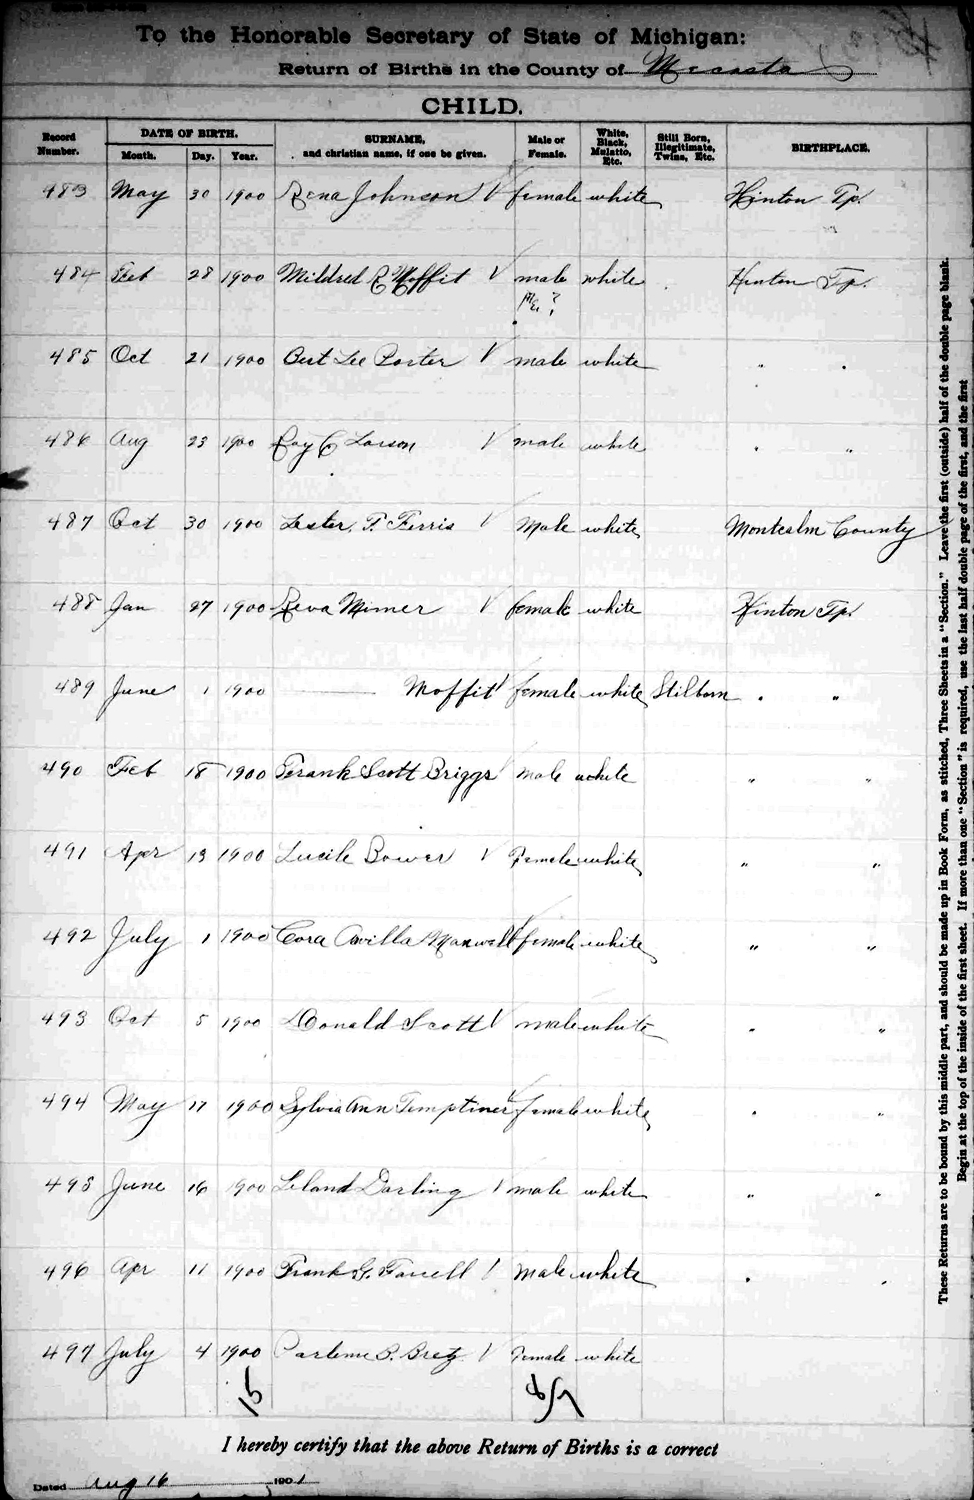 To the Honorable Secretary of State of Michigan:
Return of Births in the County of Mecosta
CHILD.
Record Number. DATE OF BIRTH. Month. Day. Year. SURNAME, and christian name, if one be given. Male or Female. White, Black, Mulatto, Etc. Still Born, Illegitimate, Twins, Etc. BIRTHPLACE.
483 May 30 1900 Rena Johnson √ female white Hinton Tp.
484 Feb 28 1900 Mildred R Moffit √ male white Hinton Tp.
?
485 Oct 21 1900 Bert Lee Porter √ male white " "
486 Aug 23 1900 Roy C Larson √ male white " "
487 Oct 30 1900 Lester F Ferris √ Male white Montcalm County
488 Jan 27 1900 Reva Mimer √ female white Hinton Tp.
489 June 1 1900 — Moffit √ female white Stilborn " "
490 Feb 18 1900 Frank Scott Briggs √ male white " "
491 Apr 13 1900 Lucile Bower √ Female white " "
492 July 1 1900 Cora Arvilla Maxwell √ female white " "
493 Oct 5 1900 Donald Scott √ male white " "
494 May 17 1900 Sylvia Ann Timptiner √ female white " "
495 June 16 1900 Leland Darling √ male white " "
496 Apr 11 1900 Frank G. Farrell √ Male white " "
497 July 4 1900 B. Bretz √ Female white
15 8/7
I hereby certify that the above Return of Births is a correct
Dated Aug 16 1901
These Returns are to be bound by this middle part, and should be made up in Book Form, as stitched, Three Sheets in a "Section." Leave the first (outside) half of the double page blank.
Begin at the top of the inside of the first sheet. If more than one "Section" is required, use the last half double page of the first, and the first